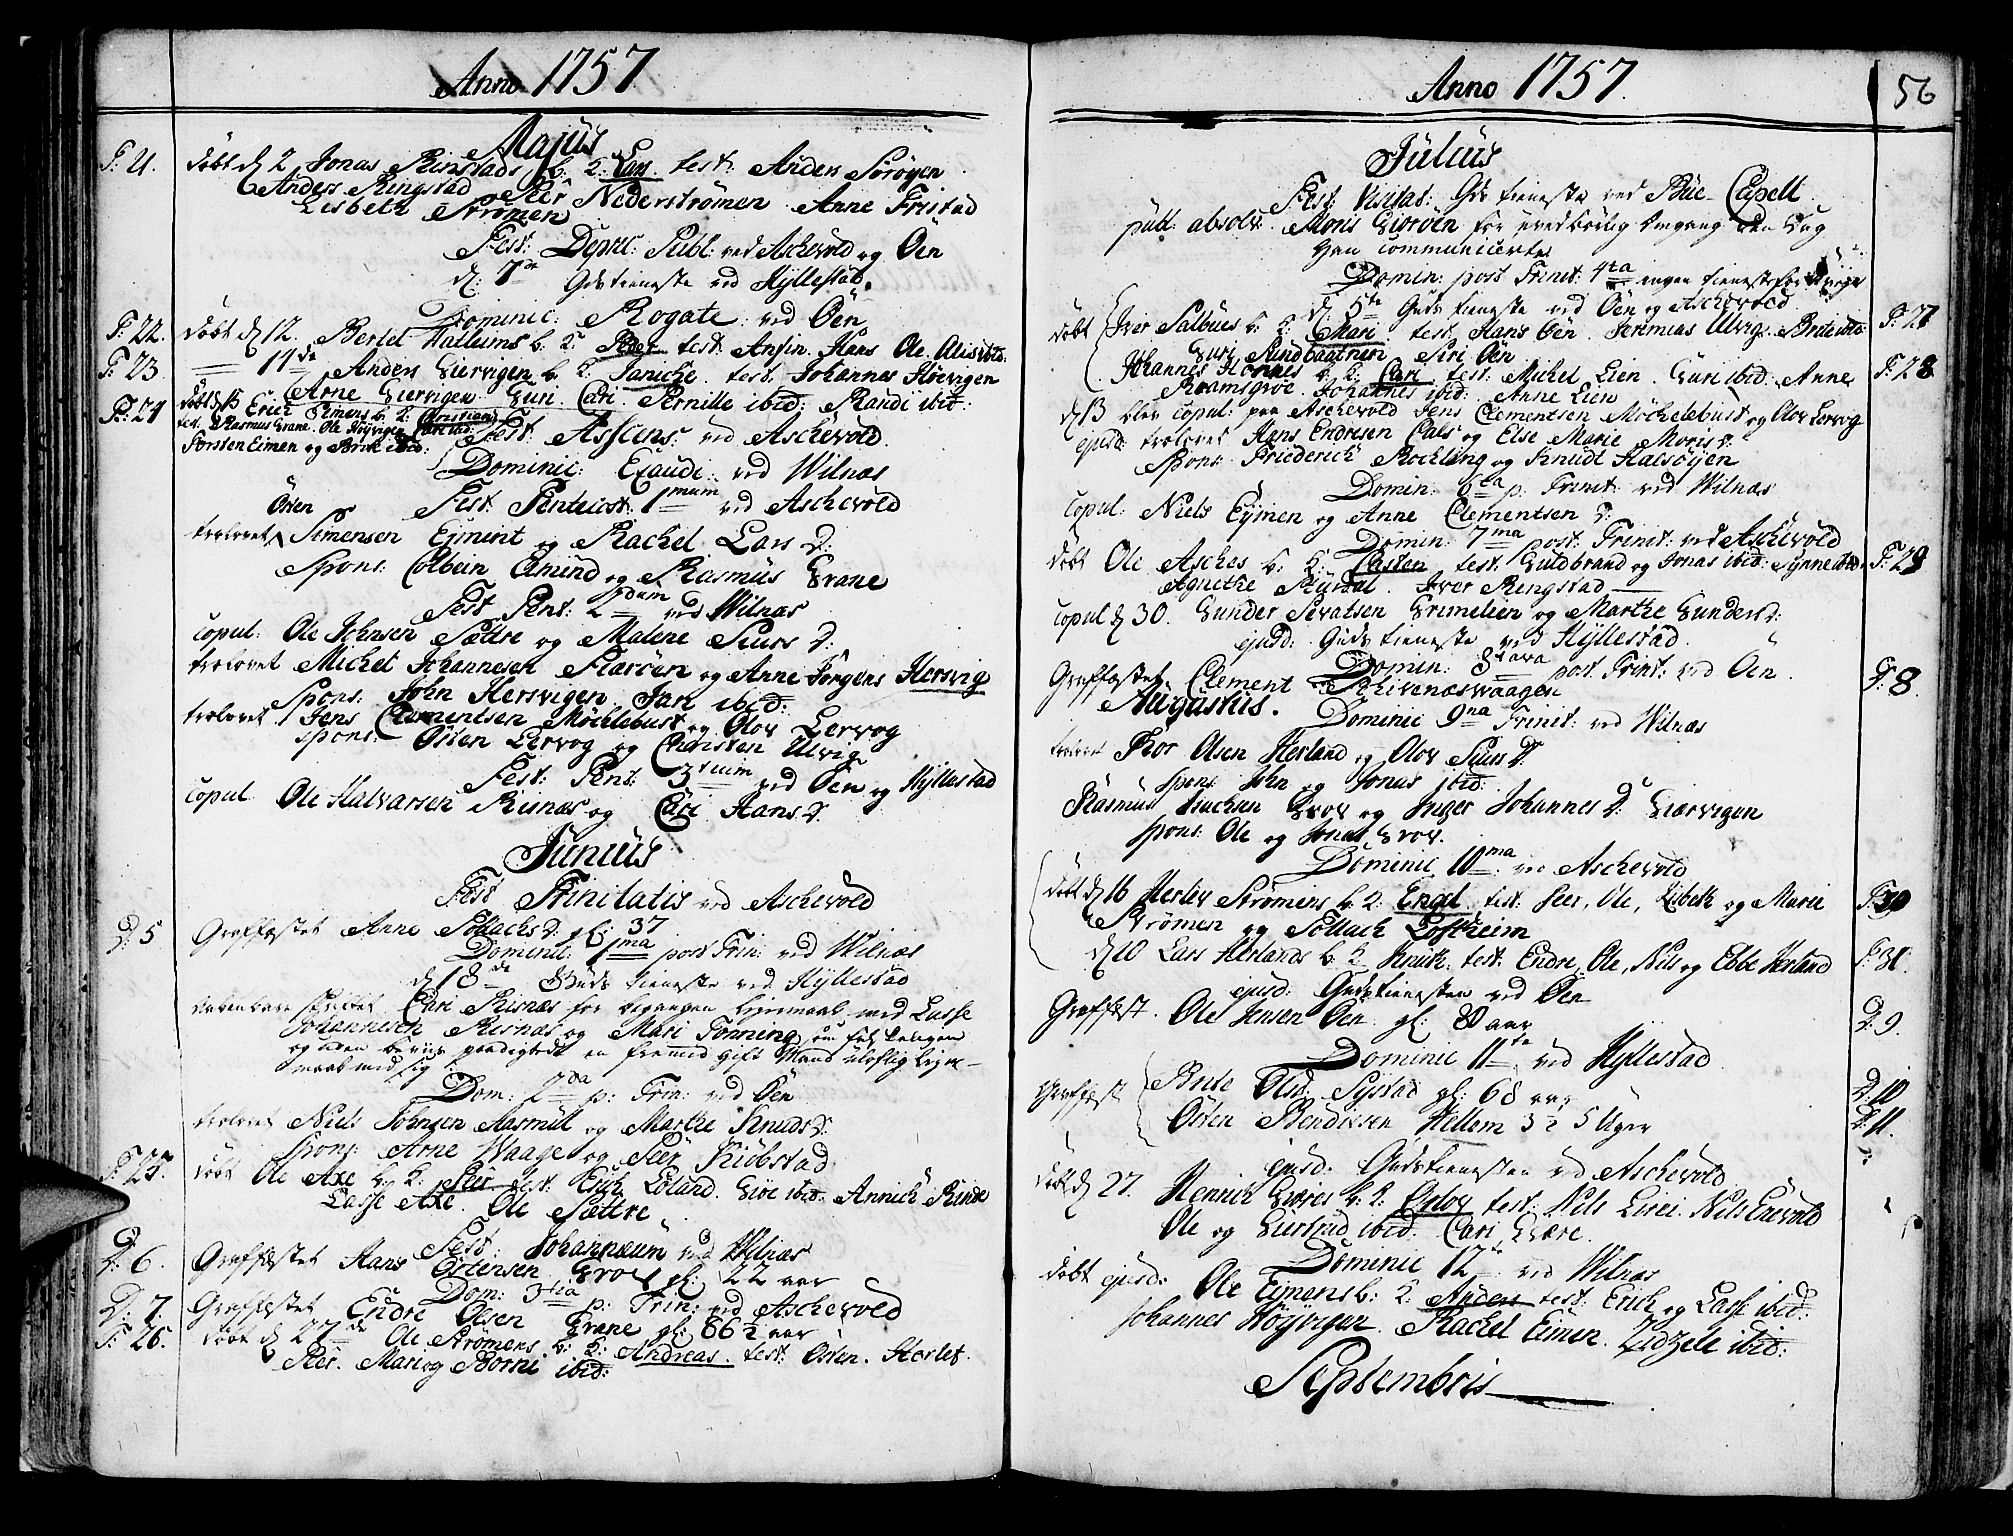 Anno 1757
Majus
F: 21. döbt d 2 Jonas Rinstads b: 2: Lars. test: Anders Sörögen
Anders Ringstad Peer Nederströmen. Anne Fristad
Lisbeth Strömen
Fest: Deprec: Publ: ved Aschevold og Öen
d: 7de Gudstieneste ved Hyllestad.
Dominic: Rogate: ved Öen
F: 22. döbt d 12. Bertel Hatlems b: 2: Peder test: Ansin. Hans Ole. Alis ibid:
F: 23 — 14de Anders Giervigen b: 2: Janiche. test: Johannes Höevigen
Arne Giervigen. Guri. Cari. Pernille ibid: Randi ibid:
F: 24 döbt d 15 Erich Eimens b: 2: Christian
test: Rasmus Grane. Ole Höyvigen
Torsten Eimen og Berit ibid:
Fest: Assens: ved Aschevold.
Dominic: Exaudi: ved Wilnæs
Fest: Pentecost: 1mum ved Aschevold
Östen
trolovet Simensen Ejmint og Rachel Lars D:
Spons: Colbein Eimind og Rasmus Grane
Fest Pent: 2dum ved Wilnæs
copul: Ole Johnsen Sættre og Malene Siurs D:
trolovet Michel Johannesen Staröen og Anne Jörgens Hersvig
Spons: John Hersvigen Jan ibid:
trolovet Jens Clementsen Möchlebust og Olov Lervog
spons: Östen Lervog og Christen Ulvig
Fest: Pent: 3tium ved Öen og Hyllestad
copul Ole Halvarsen Risnæs og Cari Hans D:
Junius
Fest Trinitatis ved Aschevold
D: 5 Graffæstet Anne Tollachs D: gl: 37
Dominic: 1ma post Trin: ved Wilnæs
d 18de Guds tieneste ved Hyllestad
aabenbare skriftet Cari Risnæs for begangen leiermaal med Lasse
Johannesen Risnæs og Mari Tönning som
og uden beviis en fremmed gift Mand uloflig leier-
maal med sig
Dom: 2da p: Trin: ved Öen
trolovet Niels Johnsen Aasmul og Marthe Knuds D:
Spons: Arne Waage og Peer Kiöbstad
F: 25. döbt Ole Axe b: 2: Peir test: Erich Lölund. Giöe ibid: Annich Rinde
Lasse Axe. Ole Sættre
Fest: Johannæum ved Wilnæs
D: 6. Graffæstet Hans Ortensen Grov gl: 22 aar
Dom: 3tia p: Trin: ved Aschevold
D: 7. Graffæstet Endre Olsen Grane gl: 86½ aar
F: 26. döbt d 27de Ole Strömens b: 2: Andreas. test: Östen. Herlef.
Peer. Mari og Borni ibid:
Anno 1757. 56
Julius
Fest: Visitat: Guds tieneste ved Büe-Capell
publ: absolv: Monis Gioröen for usædvanlig omgang den Dag
han communicerte
Domin: post Trinit: 4ta ingen tieneste for
d 5te Guds tieneste ved Öen og Aschevold
döbt Iver Salbues b: 2: Mari test: Hans Öen Jeremias Ulvig. Brite ibid: F: 27
Guri Sundbaatnen Siri Öen
Johannes Hornes b: 2: Cari test: Michel Lien. Guri ibid: Anne F: 28
Raamsgröe. Johannes ibid: Anne Lien
d 13 blev copul: paa Aschevold Jens Clementsen Möchelebust og Olov Lervog
ejusd: trolovet Hans Endresen Cals og Else Marie Moris D:
Spons: Friederich Rochling og Knudt Halsöyen
Domin: 6ta p: Trinit: ved Wilnæs
copul: Niels Eijmen og Anne Clementsen D:
Domin: 7ma post: Trinit: ved Aschevold
döbt Ole Asches b: 2: Casten test: Guldbrand og Jonas ibid: Synne ibid: F: 29
Agnethe Rüdal Iver Ringstad
copul d 30. Gunder Sivatsen Grimelien og Marthe Gunders D:
ejusd: Guds tieneste ved Hyllestad
Domin: 8tava post Trinit: ved Öen
Graffæstet Clement Skivenæswaagen D: 8.
Augustus.
Dominic 9na Trinit: ved Wilnæs
trolovet Thor Olsen Herland og Olov Siurs D:
Spons: John og Jonas ibid:
Rasmus Isachsen Grov og Inger Johannes D: Giærvigen
Spons: Ole og Jonas Grov.
Dominic 10ma ved Aschevold
döbt d 16 Herlev Strömens b: 2: Engel test: Peer, Ole, Lisbeth og Marie F: 30
Strömen og Tollach Loftheim
d 20 Lars Herlands b: 2: Henrik. test: Endre, Ole, Nils og Ebbe Herland F: 31.
ejusd: Gudstienesten ved Öen
Graffæst. Ole Jensen Öen gl: 80 aar D: 9.
Dominic 11te ved Hyllestad
Graffæst Brite Olsd: Systad gl: 68 aar D: 10
Östen Bendixsen Hellem 3½ 5 Uger D: 11.
ejusd: Gudstienesten ved Aschevold
döbt d 27. Henrich Giöres b: 2: Orlov test: Nils Lirei. Nils Enevold
Ole og Giertrud ibid: Cari Giære.
Dominic 12te ved Wilnæs
döbt ejusd: Ole Eimens b: 2: Anders test: Erich og Lasse ibid:
Johannes Höyvigen. Rachel Eimen. Zidzele ibid:
Septembris